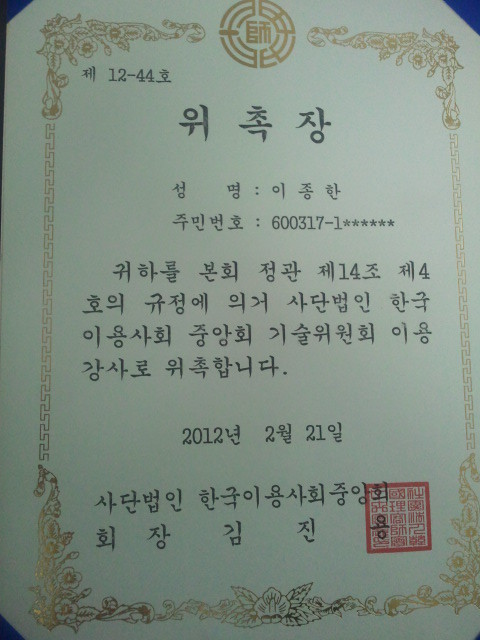 師
제 12-44호
위 촉 장
성 명 : 이 종 한
주민번호 : 600317-1******
귀하를 본회 정관 제14조 제4
호의 규정에 의거 사단법인 한국
이용사회 중앙회 기술위원회 이용
강사로 위촉합니다.
2012년 2월 21일
사단법인 한국이용사회중앙회
회 장 김 진 용